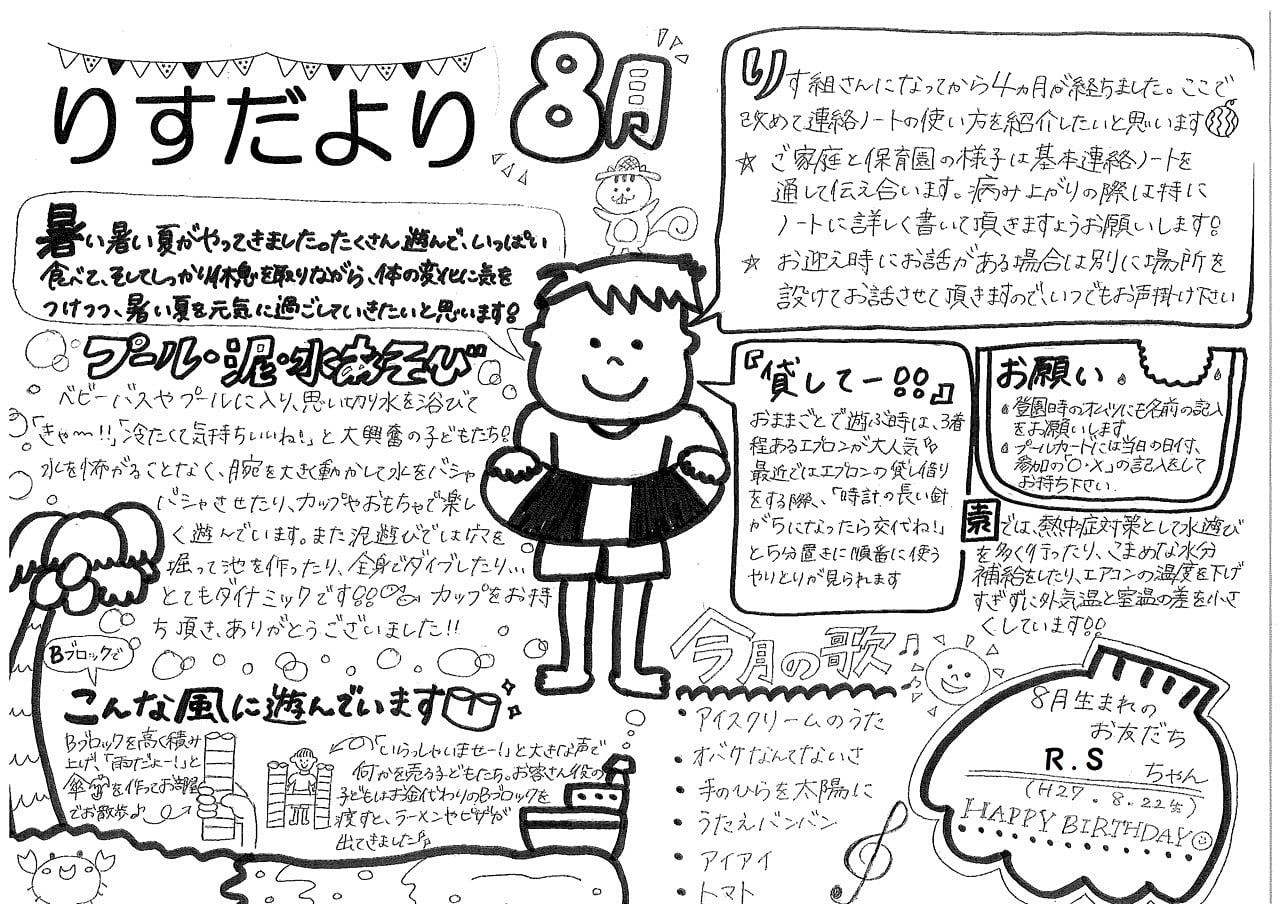 りすだより
8月
暑い暑い夏がやってきました。たくさん遊んで、いっぱい
食べて、そしてしっかり休息を取りながら、体の変化に気を
つけつつ、暑い夏を元気に過ごしていきたいと思います!
りす組さんになってから4ヵ月が経ちました。ここで
改めて連絡ノートの使い方を紹介したいと思います
☆ ご家庭と保育園の様子は基本連絡ノートを
通して伝え合います。病み上がりの際は特に
ノートに詳しく書いて頂きますようお願いします!
☆ お迎え時にお話がある場合は別に場所を
設けてお話させて頂きますので、いつでもお声掛け下さい
プール・泥・水あそび
ベビーバスやプールに入り、思い切り水を浴びて
「きゃ〜!!」「冷たくて気持ちいいね!」と大興奮の子どもたち!
水を怖がることなく、腕を大きく動かして水をバシャ
バシャさせたり、カップやおもちゃで楽し
く遊んでいます。また泥遊びでは穴を
掘って池を作ったり、全身でダイブしたり...
とてもダイナミックです!! カップをお持
ち頂き、ありがとうございました!!
『貸してー!!』
おままごとで遊ぶ時は、3着
程あるエプロンが大人気!
最近ではエプロンの貸し借り
をする際、「時計の長い針
が5になったら交代ね!」
と5分置きに順番に使う
やりとりが見られます
お願い
登園時のオムツにも名前の記入
をお願いします
プールカードには当日の日付、
参加の「○・×」の記入をして
お持ち下さい.
では、熱中症対策として水遊び
を多く行ったり、こまめな水分
補給をしたり、エアコンの温度を下げ
すぎずに外気温と室温の差を小さ
くしています!!
Bブロックで
こんな風に遊んでいます
Bブロックを高く積み
上げ、「雨だよー!」と
傘を作ってお部屋
でお散歩♪
「いらっしゃいませー!」と大きな声で
何かを売る子どもたち。お客さん役の
子どもはお金代わりのBブロックを
渡すと、ラーメンやピザが
出てきました♪
今月の歌
・アイスクリームのうた
・オバケなんてないさ
・手のひらを太陽に
・うたえバンバン
・アイアイ
・トマト
8月生まれの
お友だち
R.S ちゃん
(H27.8.22生)
HAPPY BIRTHDAY